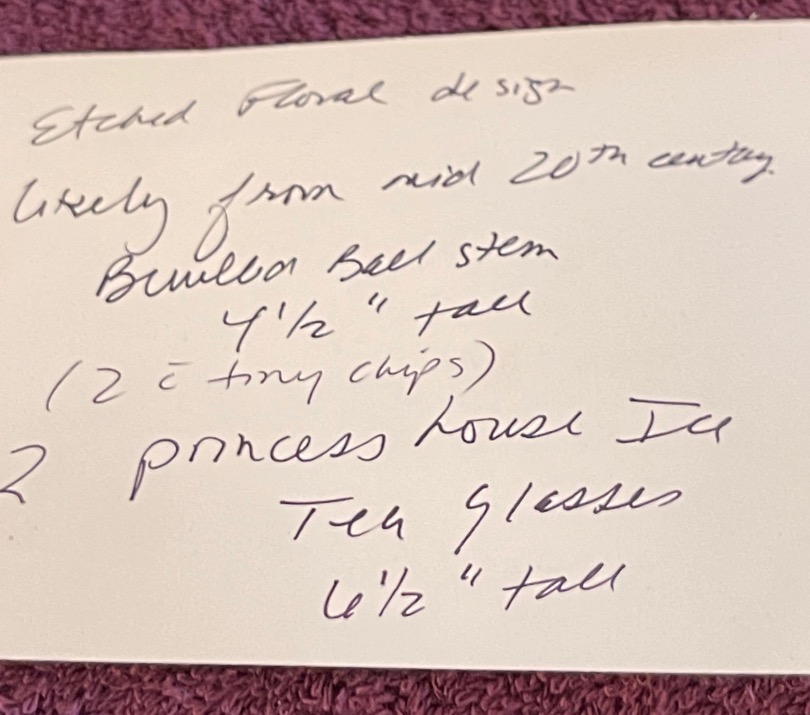 Etched Floral design
likely from mid 20th century
Ball stem
4 1/2" tall
(2 c̄ tiny chips)
2 princess house Ice
Tea glasses
6 1/2" tall